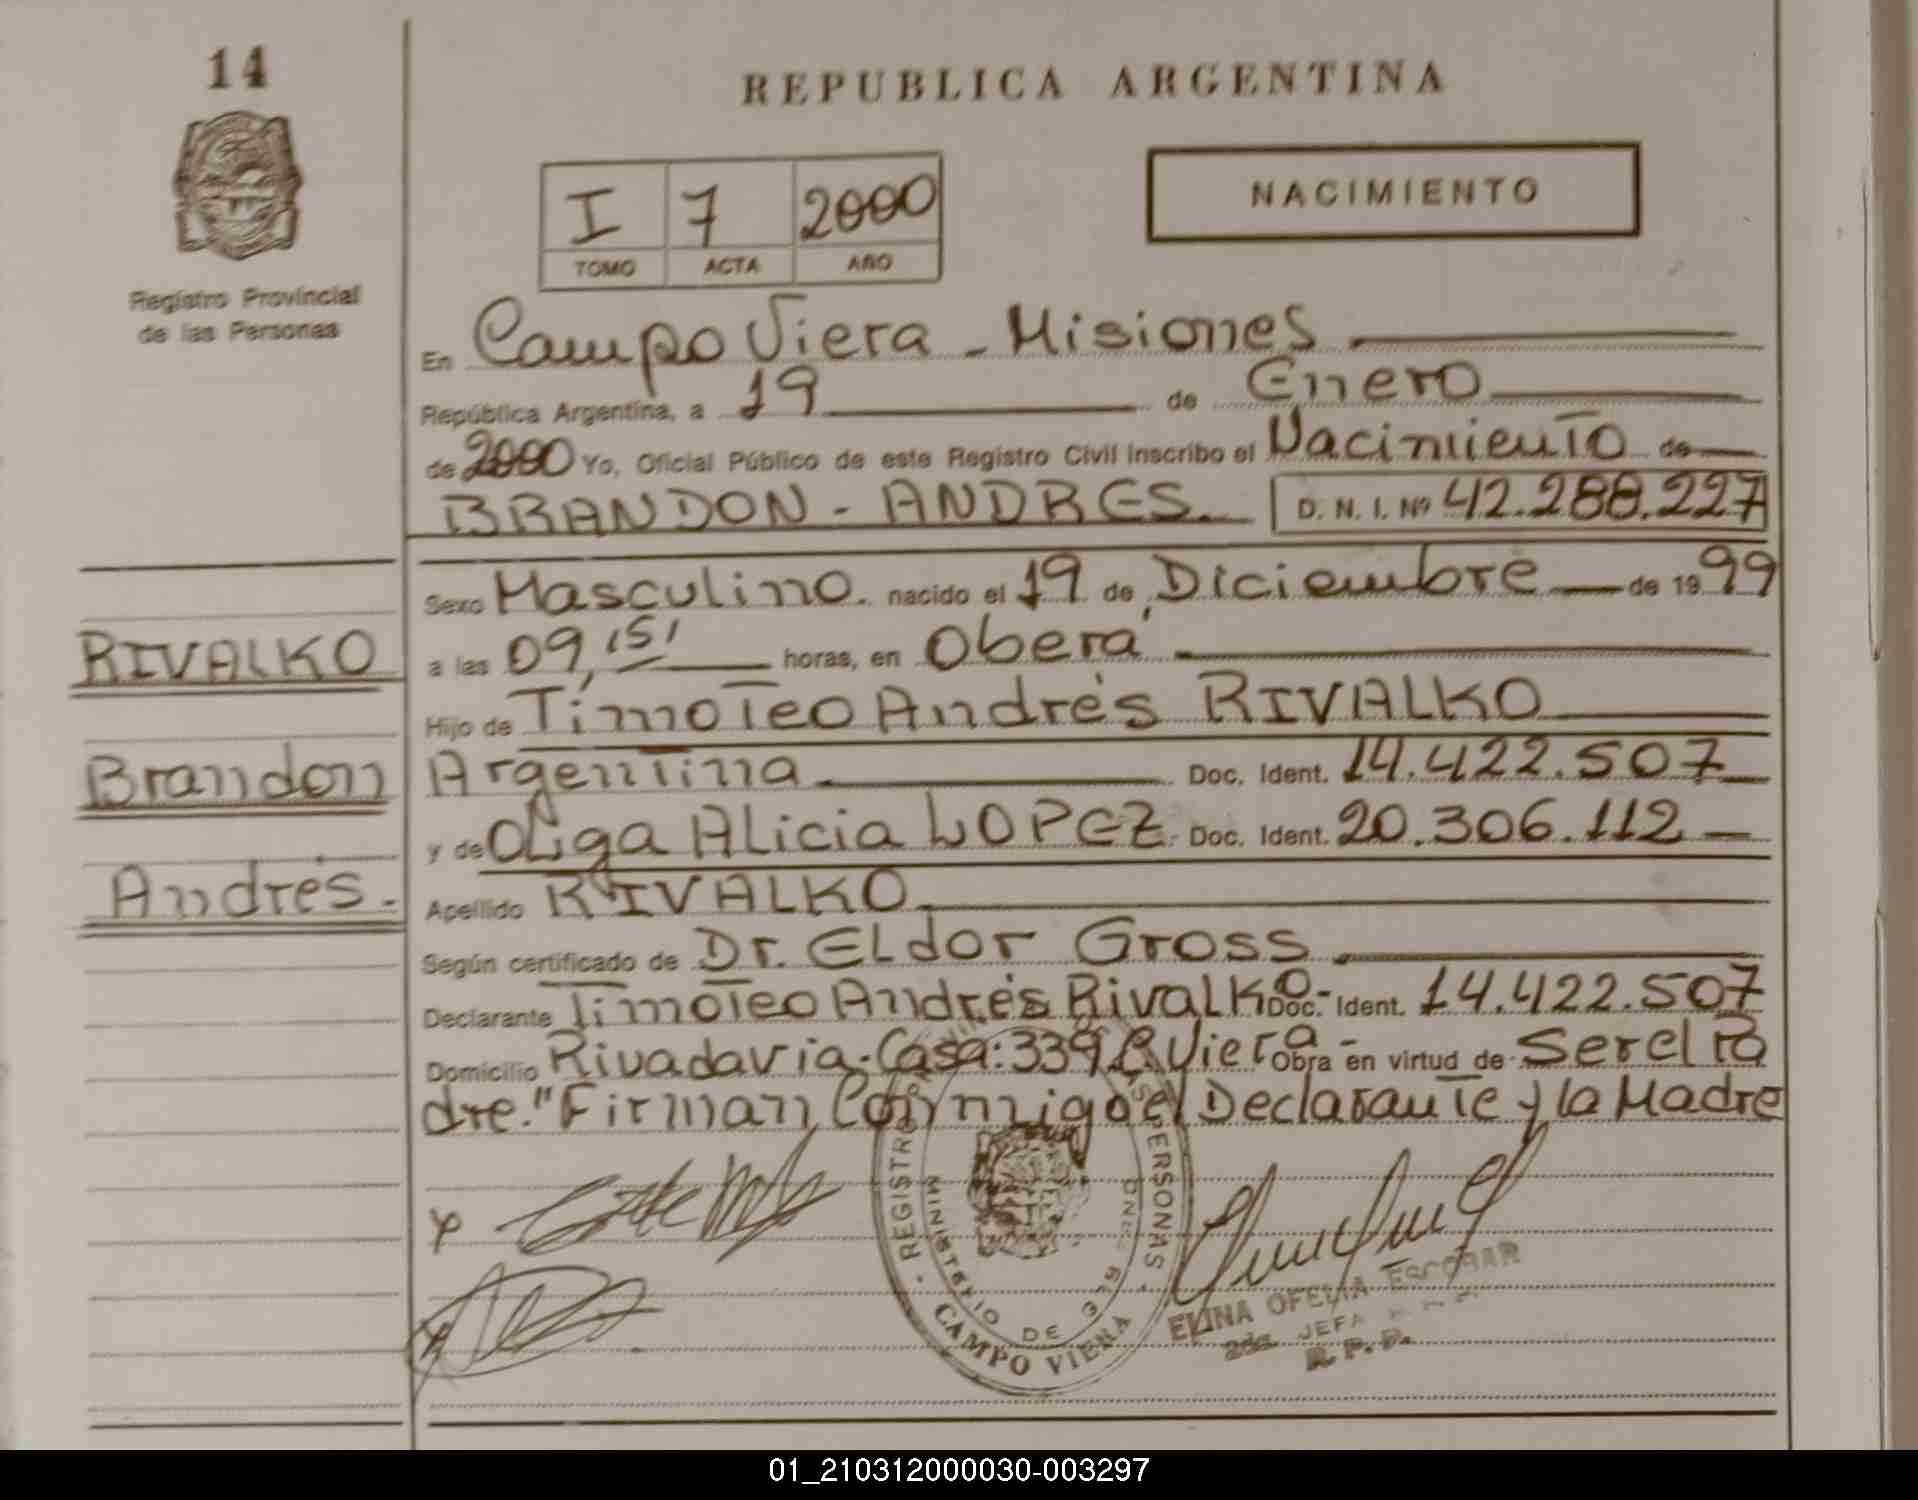 14
Registro Provincial
de las Personas
REPUBLICA ARGENTINA
I 7 2000
TOMO ACTA AÑO
NACIMIENTO
En Campo Viera - Misiones
República Argentina, a 19 de Enero
de 2000 Yo, Oficial Público de este Registro Civil inscribo el Nacimiento de
BRANDON - ANDRES. D. N. I. Nº 42.288.227
Sexo Masculino. nacido el 19 de Diciembre de 1999
a las 09,15' horas, en Oberá
Hijo de Timoteo Andrés RIVALKO
Argentina Doc. Ident. 14.422.507
y de Olga Alicia LOPEZ. Doc. Ident. 20.306.112
Apellido RIVALKO
Según certificado de Dr. Eldor Gross
Declarante Timoteo Andrés Rivalko- Doc. Ident. 14.422.507
Domicilio Rivadavia. Casa: 339 C. Viera- Obra en virtud de Ser el Pa
dre. "Firman Conmigo el Declarante y la Madre
RIVALKO
Brandon
Andrés.
REGISTRO PERSONAS
MINISTERIO DE
CAMPO VIERA
ELINA OFELIA ESCOBAR
2da JEFA
R. P. P.
01_210312000030-003297